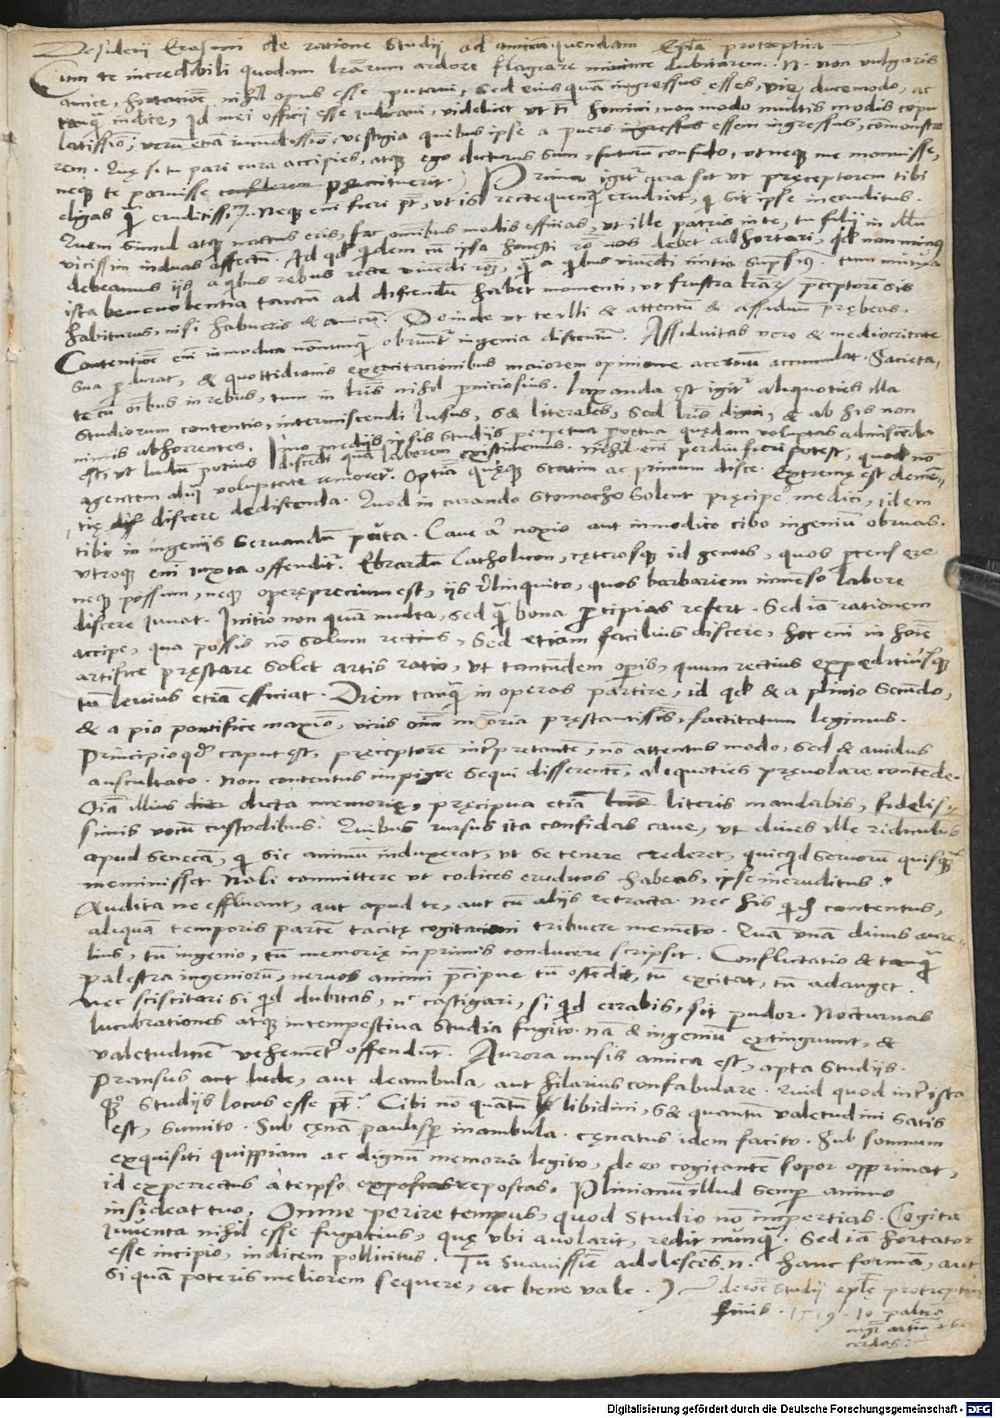 Desiderii Erasmi de ratione studii ad amicu quendam Epla protreptica
Cum te incredibili quodam lrarum ardore flagrare minime dubitarem .N. non vulgaris
amice, hortatioe nihil opus esse putavi, sed eius qua ingressus esses, vie duce modo, ac
Id mei officii esse iudicavi, videlicet ut ti homini, non modo multis modis copu
latissio, veru etia iucundissio, vestigia quibus ipse a puero ingressus essem ingressus, comonstra
rem. Que si tu pari cura accipies, atque ego dicturus sum, futurum confido, ut neque me monuisse,
neque te paruisse penituerit. Prima igit cura sit ut preceptorem tibi
eligas q eruditissi. Neque eni fieri pt, ut is recte quenq erudiat, q sit ipse ineruditus.
Quem simul atque nactus eris, fac omnibus modis efficias, ut ille patris in te, tu filij in illu
vicissim induas affectu. Ad qd qdem cu ipsa honesti ro nos debet adhortari, qd non minus
debeamus iis a qbus rebus recte vivedi, q a qbus vivendi initia sups. tum mutua
ista benevolentia tantum ad discendu habet momenti, ut frustra lrar pceptore sis
habiturus, nisi habueris & amicu. Deinde ut te illi & attentu & assiduum prebeas.
Contentioe eni inmodica nonnunq obruunt ingenia discentum. Assiduitas vero & mediocritate
sua p durat, & quottidianis exercitacionibus maiorem opinione acervu accumulat. Sacieta-
te cu oibus in rebus, tum in lris nihil pniciosius. Laxanda est igit aliquoties illa
studiorum contentio, intermiscendi lusus, sed literales, sed lris digni, & ab his non
nimis abhorrentes. Imo medijs ipsis studijs perpetua quedam voluptas admiscenda
est, ut ludu potius discedi qua laborem existimemus. Nihil eni perdiu fieri potest, quod no
agentem aliq voluptate remoret. Optia queque statim ac primum disce. Extreme est demen-
tie discere dediscenda. Quod in curando stomacho solent precipe medici, idem
tibi in ingenijs servandum puta. Cave a noxio aut inmodico cibo ingeniu obruas.
utroque eni iuxta offendit. Ebrardu Catholicon, ceterosque id genus, quos pcensere
neque possum, neque operepreciumest, iis rlinquito, quos barbariem inmenso labore
discere iuvat. Initio non qua multa, sed q bona pcipias refert. Sed ia rationem
accipe, qua possis no solum rectius, sed etiam facilius discere, hoc eni in hoie
artifice prestare solet artis ratio, ut tantundem opis, quum rectius expeditiusque
tu levius etia efficiat. Diem tanq in operas partire, id qd & a plinio secundo,
& a pio pontifice maxio, viris oim moria prestantissis, factitatum legimus.
Principio qd caput est, preceptore intpretante, no attentus modo, sed & avidus
auscultato. Non contentus impigre sequi differente, aliquoties prevolare contede.
Oia illius dicta memorie, precipua etia literis mandabis, fidelis-
simis vocu custodibus. Quibus rursus ita confidas cave, ut dives ille ridiculus
apud seneca, q sic animu induxerat, ut se tenere crederet, quicqd servoru quisq
meminisset. Noli committere ut codices eruditos habeas, ipse ineruditus.
Audita ne effluant, aut apud te, aut cu alijs retracta. nec his qd contentus,
aliqua temporis parte tacite cogitacioni tribuere memeto. Qua una divus aure-
lius, tu ingenio, tu memorie inprimis conducere scripsit. Conflictatio & tanq
palestra ingenioru, nervos animi pcipue tu ostedit, tu excitat, tu adauget.
nec sciscitari si qd dubitas, nc castigari, si qd errabis, sit pudor. Nocturnas
lucubrationes atque intempestiva studia fugito. na & ingeniu extinguunt, &
valetudine vehement offendut. Aurora musis amica est, apta studijs.
Pransus aut lude, aut deambula, aut hilarius confabulare. Quid quod int ista
q studijs locus esse pt? Cibi no quantu libidini, sed quantu valetudini satis
est, sumito. Sub cena paulisp inambula. cenatus idem facito. Sub somnum
exquisiti quippiam ac dignu memoria legito, de eo cogitantem sopor opprimat,
id experrectus a teipso repostas. Plinianu illud semp animo
insideat tuo. Omne perire tempus, quod studio no impertias. Cogita
iuventa nihil esse fugacius, que ubi avolarit, redit nunq. Sed ia hortator
esse incipio, indicem pollicitus. Tu suavissie adolesces .n. hanc formam, aut
si qua poteris meliorem sequere, ac bene vale.) de roe studii eple protreptice
finis.